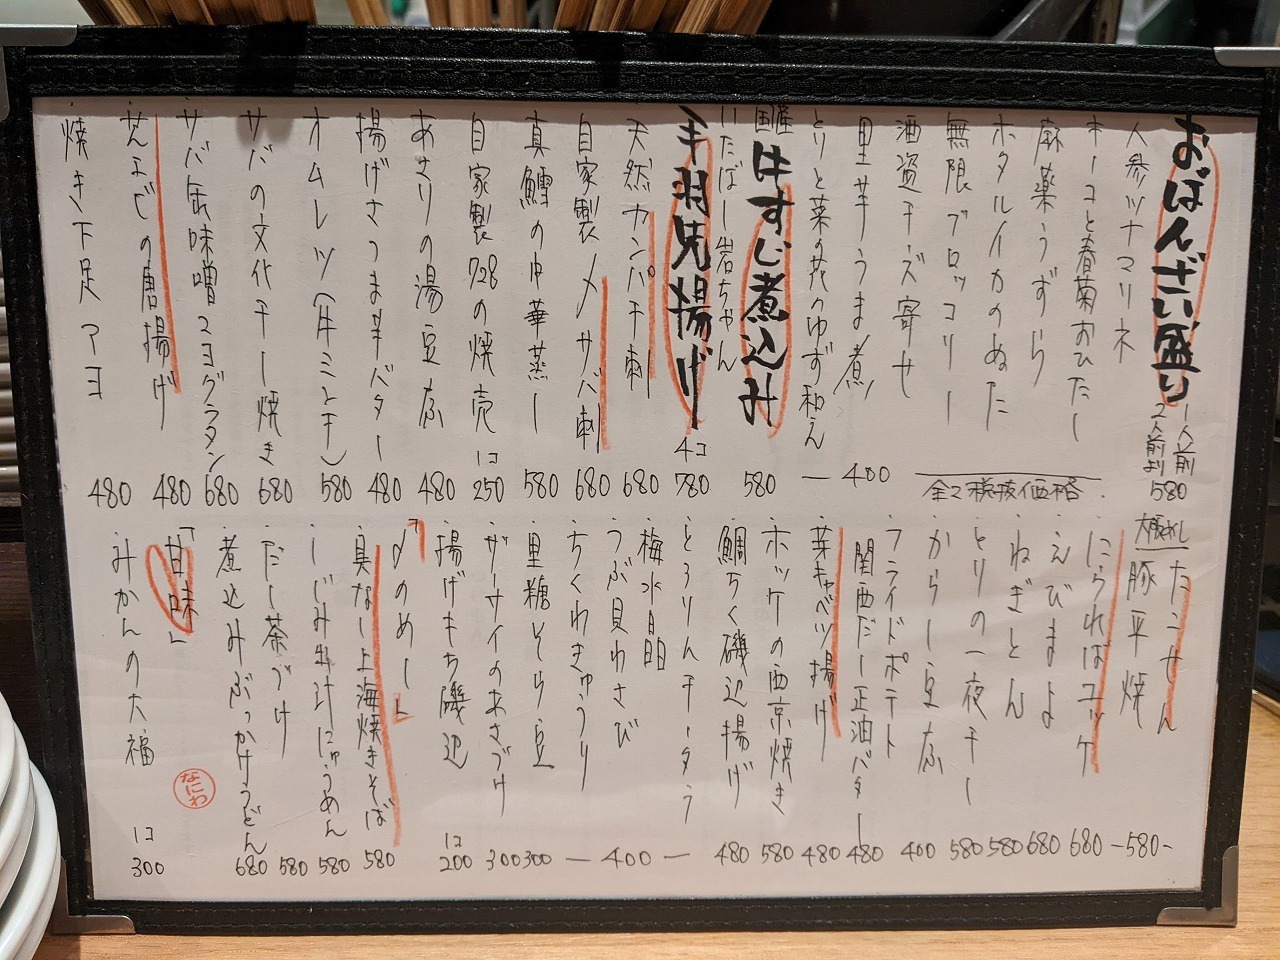 おばんざい盛り 一人前 2人前より 580
人参ツナマリネ
キーコと春菊おひたし
麻薬うずら
ホタルイカのぬた
無限ブロッコリー
酒盗チーズ寄せ
里芋うま煮
とりと菜の花のゆず和え
— 400
全て税抜価格
国産牛すじ煮込み 580
いたばし岩ちゃん
手羽先揚げ 4コ 780
天然カンパチ刺 680
自家製〆サバ刺 680
真鱈の中華蒸し 580
自家製728の焼売 1コ 250
あさりの湯豆腐 480
揚げさつま芋バター 480
オムレツ(牛ミンチ) 580
サバの文化干し焼き 680
サバ缶味噌マヨグラタン 680
せんまいの唐揚げ 480
焼き下足マヨ 480
大阪名し
たこせん
豚平焼
—580—
にらればユッケ 680
えびまよ 680
ねぎとん 580
とりの一夜干し 580
からし豆腐 400
フライドポテト 480
関西だし正油バター
芽キャベツ揚げ 480
ホッケの西京焼き 580
鯛ちく磯辺揚げ 480
とろりんチータラ
梅水晶
つぶ貝わさび
ちくわきゅうり
— 400 —
黒糖そら豆 300
ザーサイのあさづけ 300
揚げもち磯辺 1コ 200
「〆のめし」
具なし上海焼きそば 580
しじみ出汁にゅうめん 580
だし茶づけ 580
煮込みぶっかけうどん 680
「甘味」
みかんの大福 1コ 300
なにわ